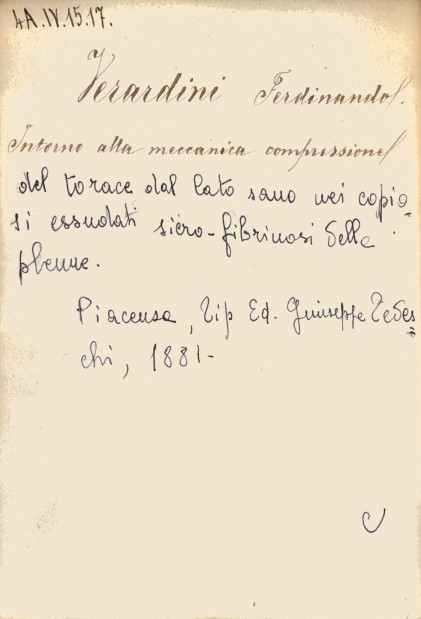 4A.IV.15.17.
Verardini Ferdinando.
Intorno alla meccanica compressione
del torace dal lato sano nei copio=
si essudati siero-fibrinosi della
pleure.
Piacenza, Tip Ed. Giuseppe Tedes=
chi, 1881-